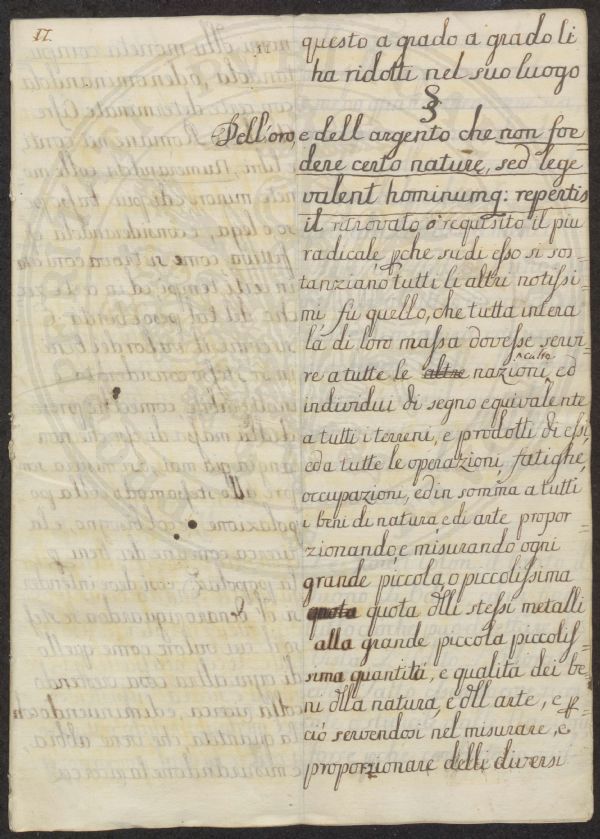 17.
questo a grado a grado li
ha ridotti nel suo luogo
§
Dell'oro, e dell argento che non foe=
dere certo nature, sed lege
valent hominumq: repertis
il ritrovato o requisito il piu
radicale, pche su di esso si sos=
tanziano tutti li altri notissi=
mi fù quello, che tutta intera
la di loro massa dovesse servi=
re a tutte le altre nazioni culte, ed
individui di segno equivalente
a tutti i terreni, e prodotti di essi,
ed a tutte le operazioni, fatighe,
occupazioni, ed in somma a tutti
i beni di natura, e di arte propor=
zionando, e misurando ogni
grande piccola, o piccolissima
quota quota dlli stessi metalli
alla grande piccola piccolis=
sima quantità, e qualità dei be=
ni dlla natura, e dll arte, e p
ciò servendosi nel misurare, e
proporzionare delli diversi